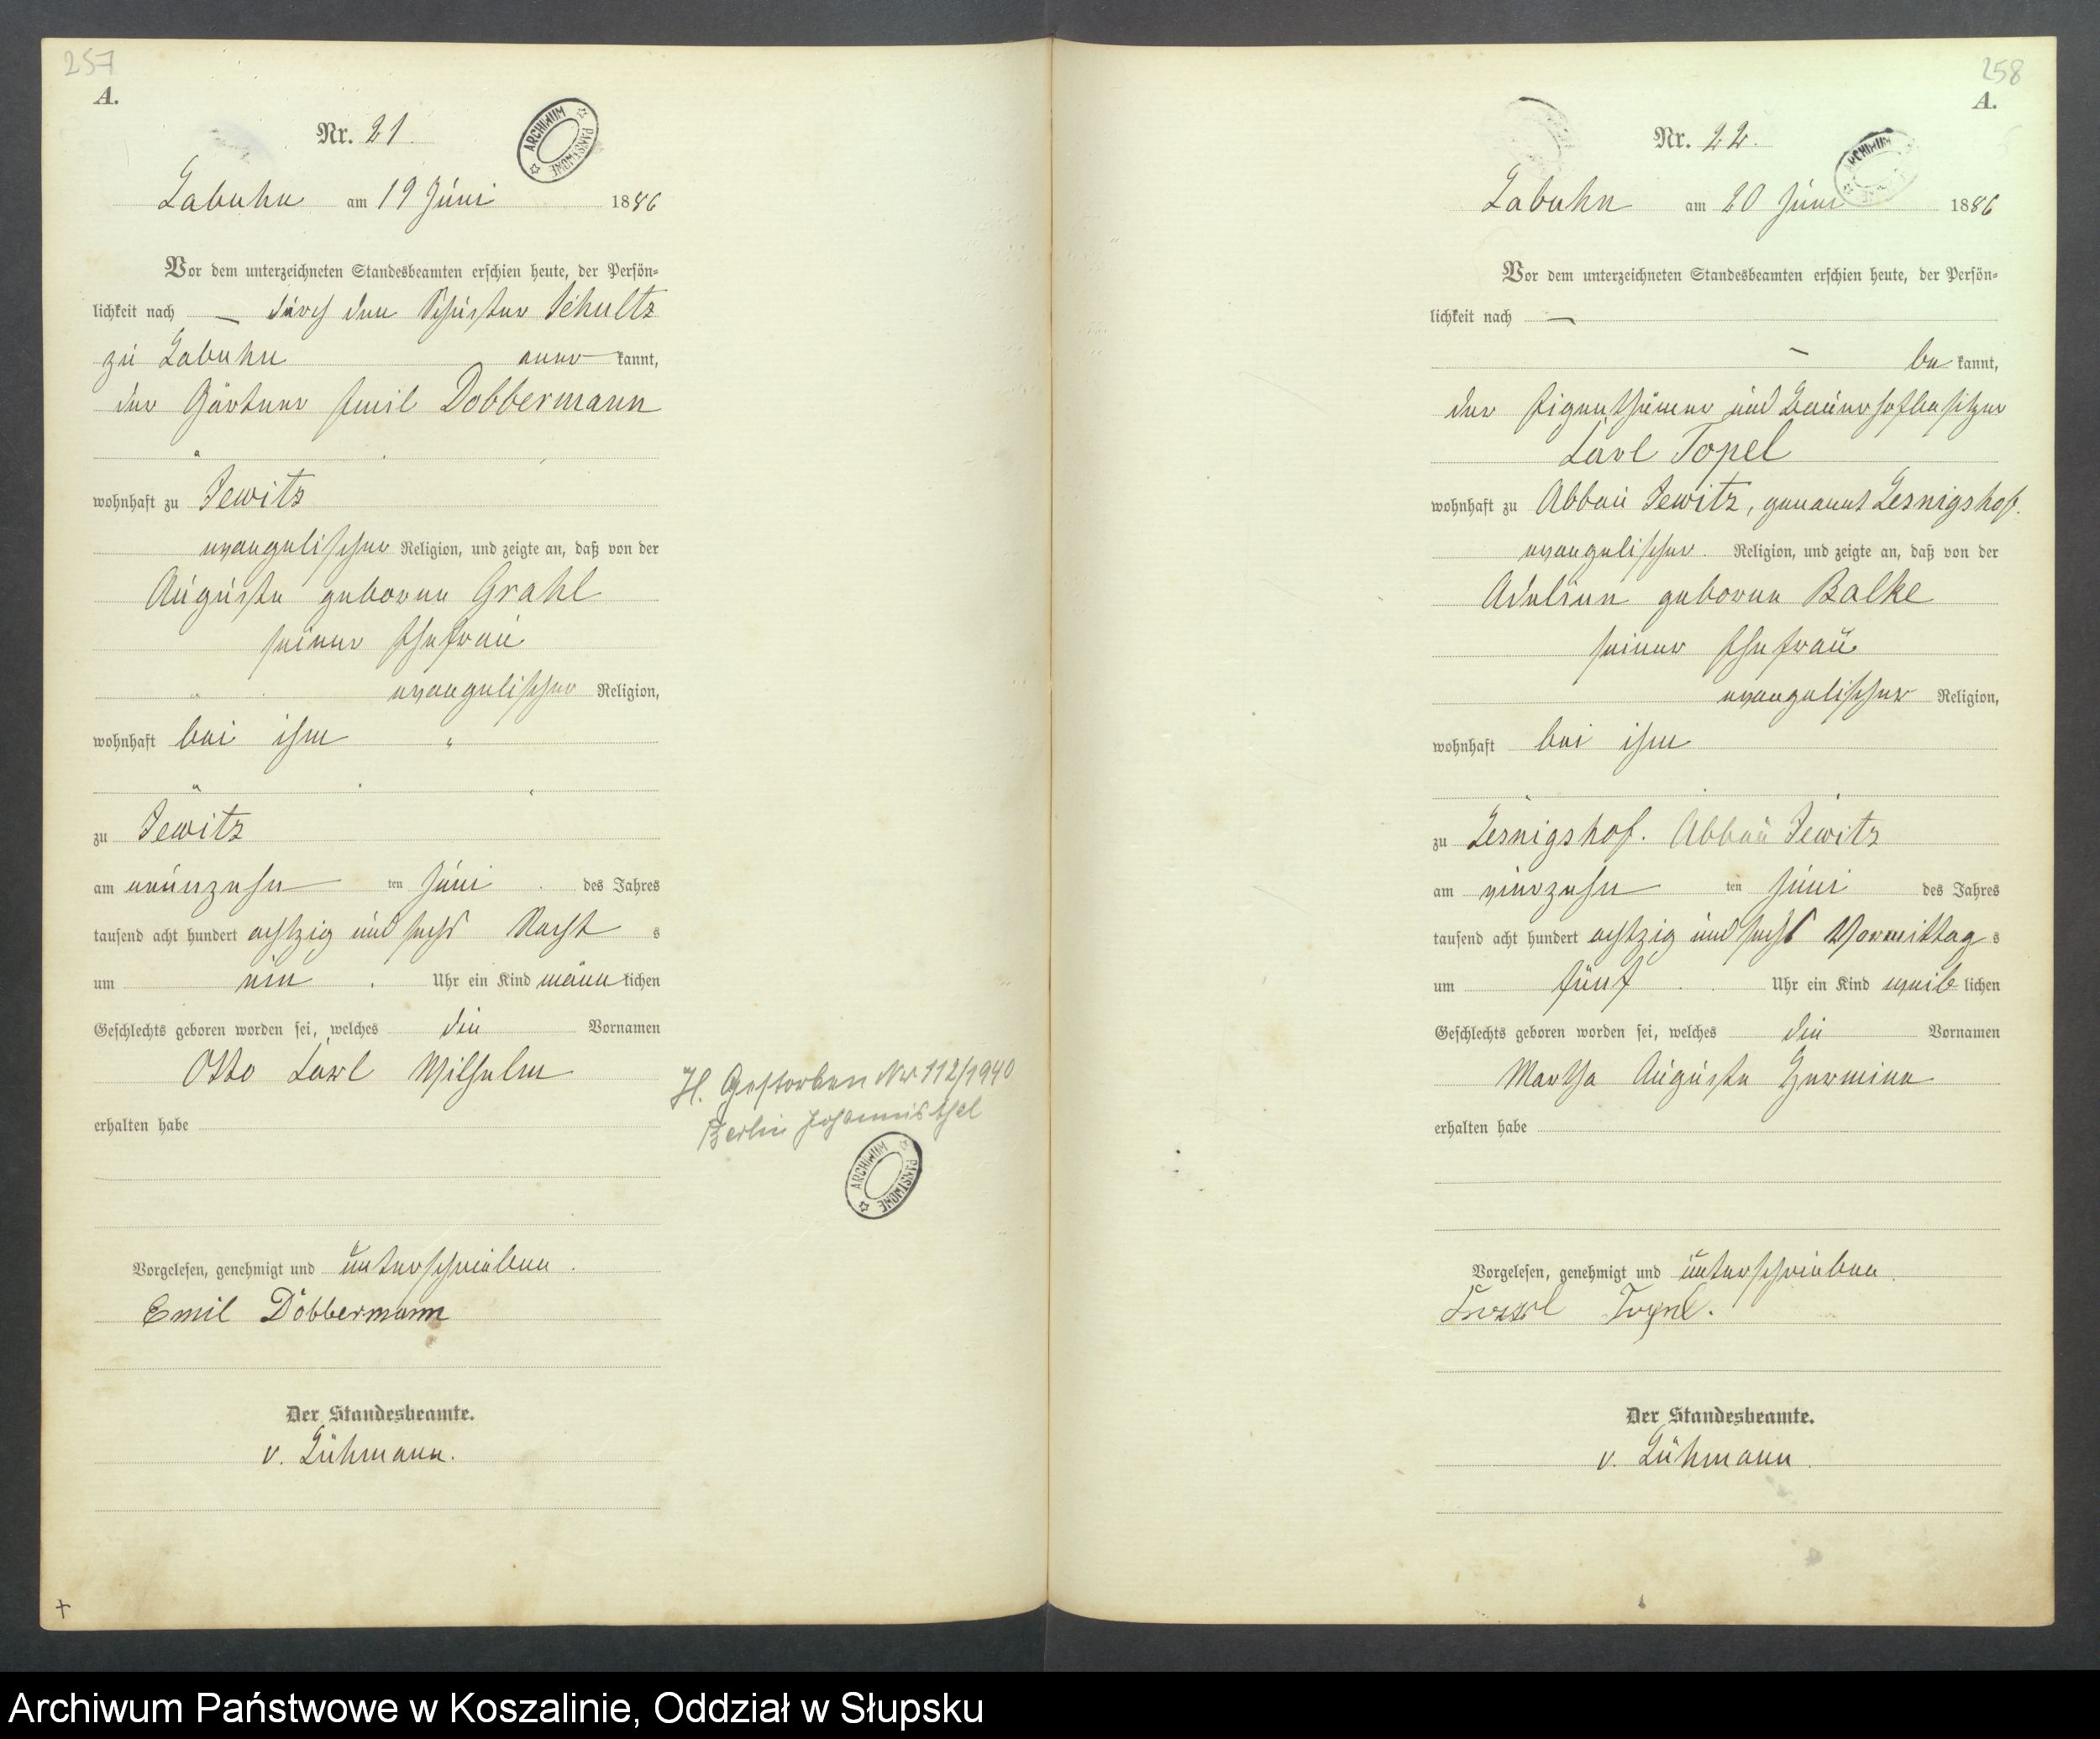 257
A.
Nr. 21.
ARCHIWUM PAŃSTWOWE
Labuhn am 19 Juni 1886
Vor dem unterzeichneten Standesbeamten erschien heute, der Persön-
lichkeit nach — durch den Schuster Schultz
zu Labuhn aner kannt,
der Gärtner Emil Dobbermann
wohnhaft zu Jewitz
evangelischer Religion, und zeigte an, daß von der
Auguste geborne Grahl
seiner Ehefrau
evangelischer Religion,
wohnhaft bei ihm
zu Jewitz
am neunzehn ten Juni des Jahres
tausend acht hundert achtzig und sechs Nacht s
um ein Uhr ein Kind männ lichen
Geschlechts geboren worden sei, welches die Vornamen
Otto Carl Wilhelm
erhalten habe
H. Gestorben Nr 112/1940
Berlin Johannisthal
ARCHIWUM PAŃSTWOWE
Vorgelesen, genehmigt und unterschrieben.
Emil Dobbermann
Der Standesbeamte.
v. Lühmann.
258
A.
Nr. 22.
ARCHIWUM
Labuhn am 20 Juni 1886
Vor dem unterzeichneten Standesbeamten erschien heute, der Persön-
lichkeit nach —
— be kannt,
der Eigenthümer und Bauerhofbesitzer
Carl Topel
wohnhaft zu Abbau Jewitz, genannt Lesnigshof.
evangelischer. Religion, und zeigte an, daß von der
Adeline geborne Balke
seiner Ehefrau
evangelischer Religion,
wohnhaft bei ihm
zu Lesnigshof. Abbau Jewitz
am vierzehn ten Juni des Jahres
tausend acht hundert achtzig und sechs Vormittag s
um fünf Uhr ein Kind weib lichen
Geschlechts geboren worden sei, welches die Vornamen
Martha Auguste Hermine
erhalten habe
Vorgelesen, genehmigt und unterschrieben.
Topel.
Der Standesbeamte.
v. Lühmann.
Archiwum Państwowe w Koszalinie, Oddział w Słupsku